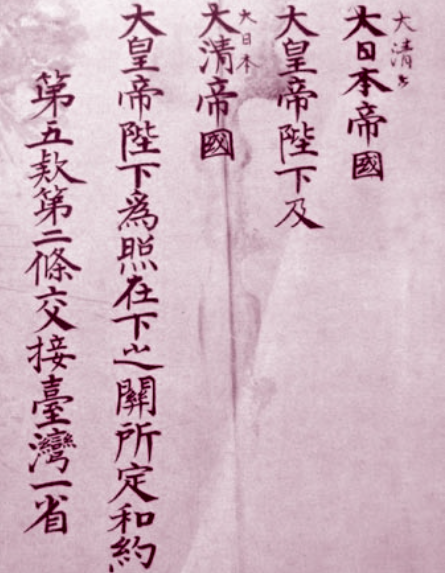 大清
大日本帝國
大皇帝陛下及
大日本
大清帝國
大皇帝陛下為照在下之關所定和約
第五款第二條交接臺灣一省